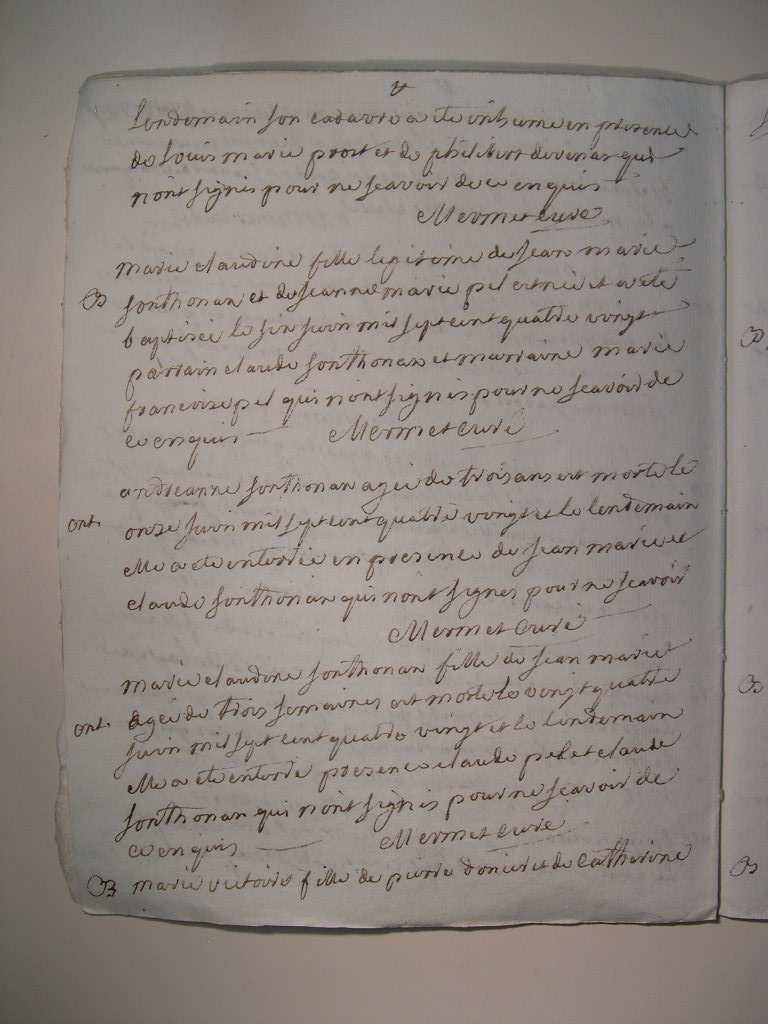 Lendemain son cadavre a ete inhume en presence
de Louis marie prost et de philibert devenat qui
nont signés pour ne scavoir de ce enquis
Mermet curé
marie claudine fille legitime de jean marie
B sonthonax et de jeanne marie pel est née et a eté
baptisée le six juin mil sept cent quatre vingt
parrain claude sonthonax et marraine marie
francoise pel qui nont signés pour ne scavoir de
ce enquis Mermet curé
andreanne sonthonax agée de trois ans est morte le
ent. onze juin mil sept cent quatre vingt et le lendemain
elle a ete enterrée en presence de jean marie et
claude sonthonax qui nont signés pour ne scavoir
Mermet Curé
marie claudine sonthonax fille de jean marie
ent. agée de trois semaines est morte le vingt quatre
juin mil sept cent quatre vingt et le lendemain
elle a ete enterée presence claude pel et claude
sonthonax qui nont signés pour ne scavoir de
ce enquis Mermet curé
B marie victoire fille de pierre donier et de Catherine